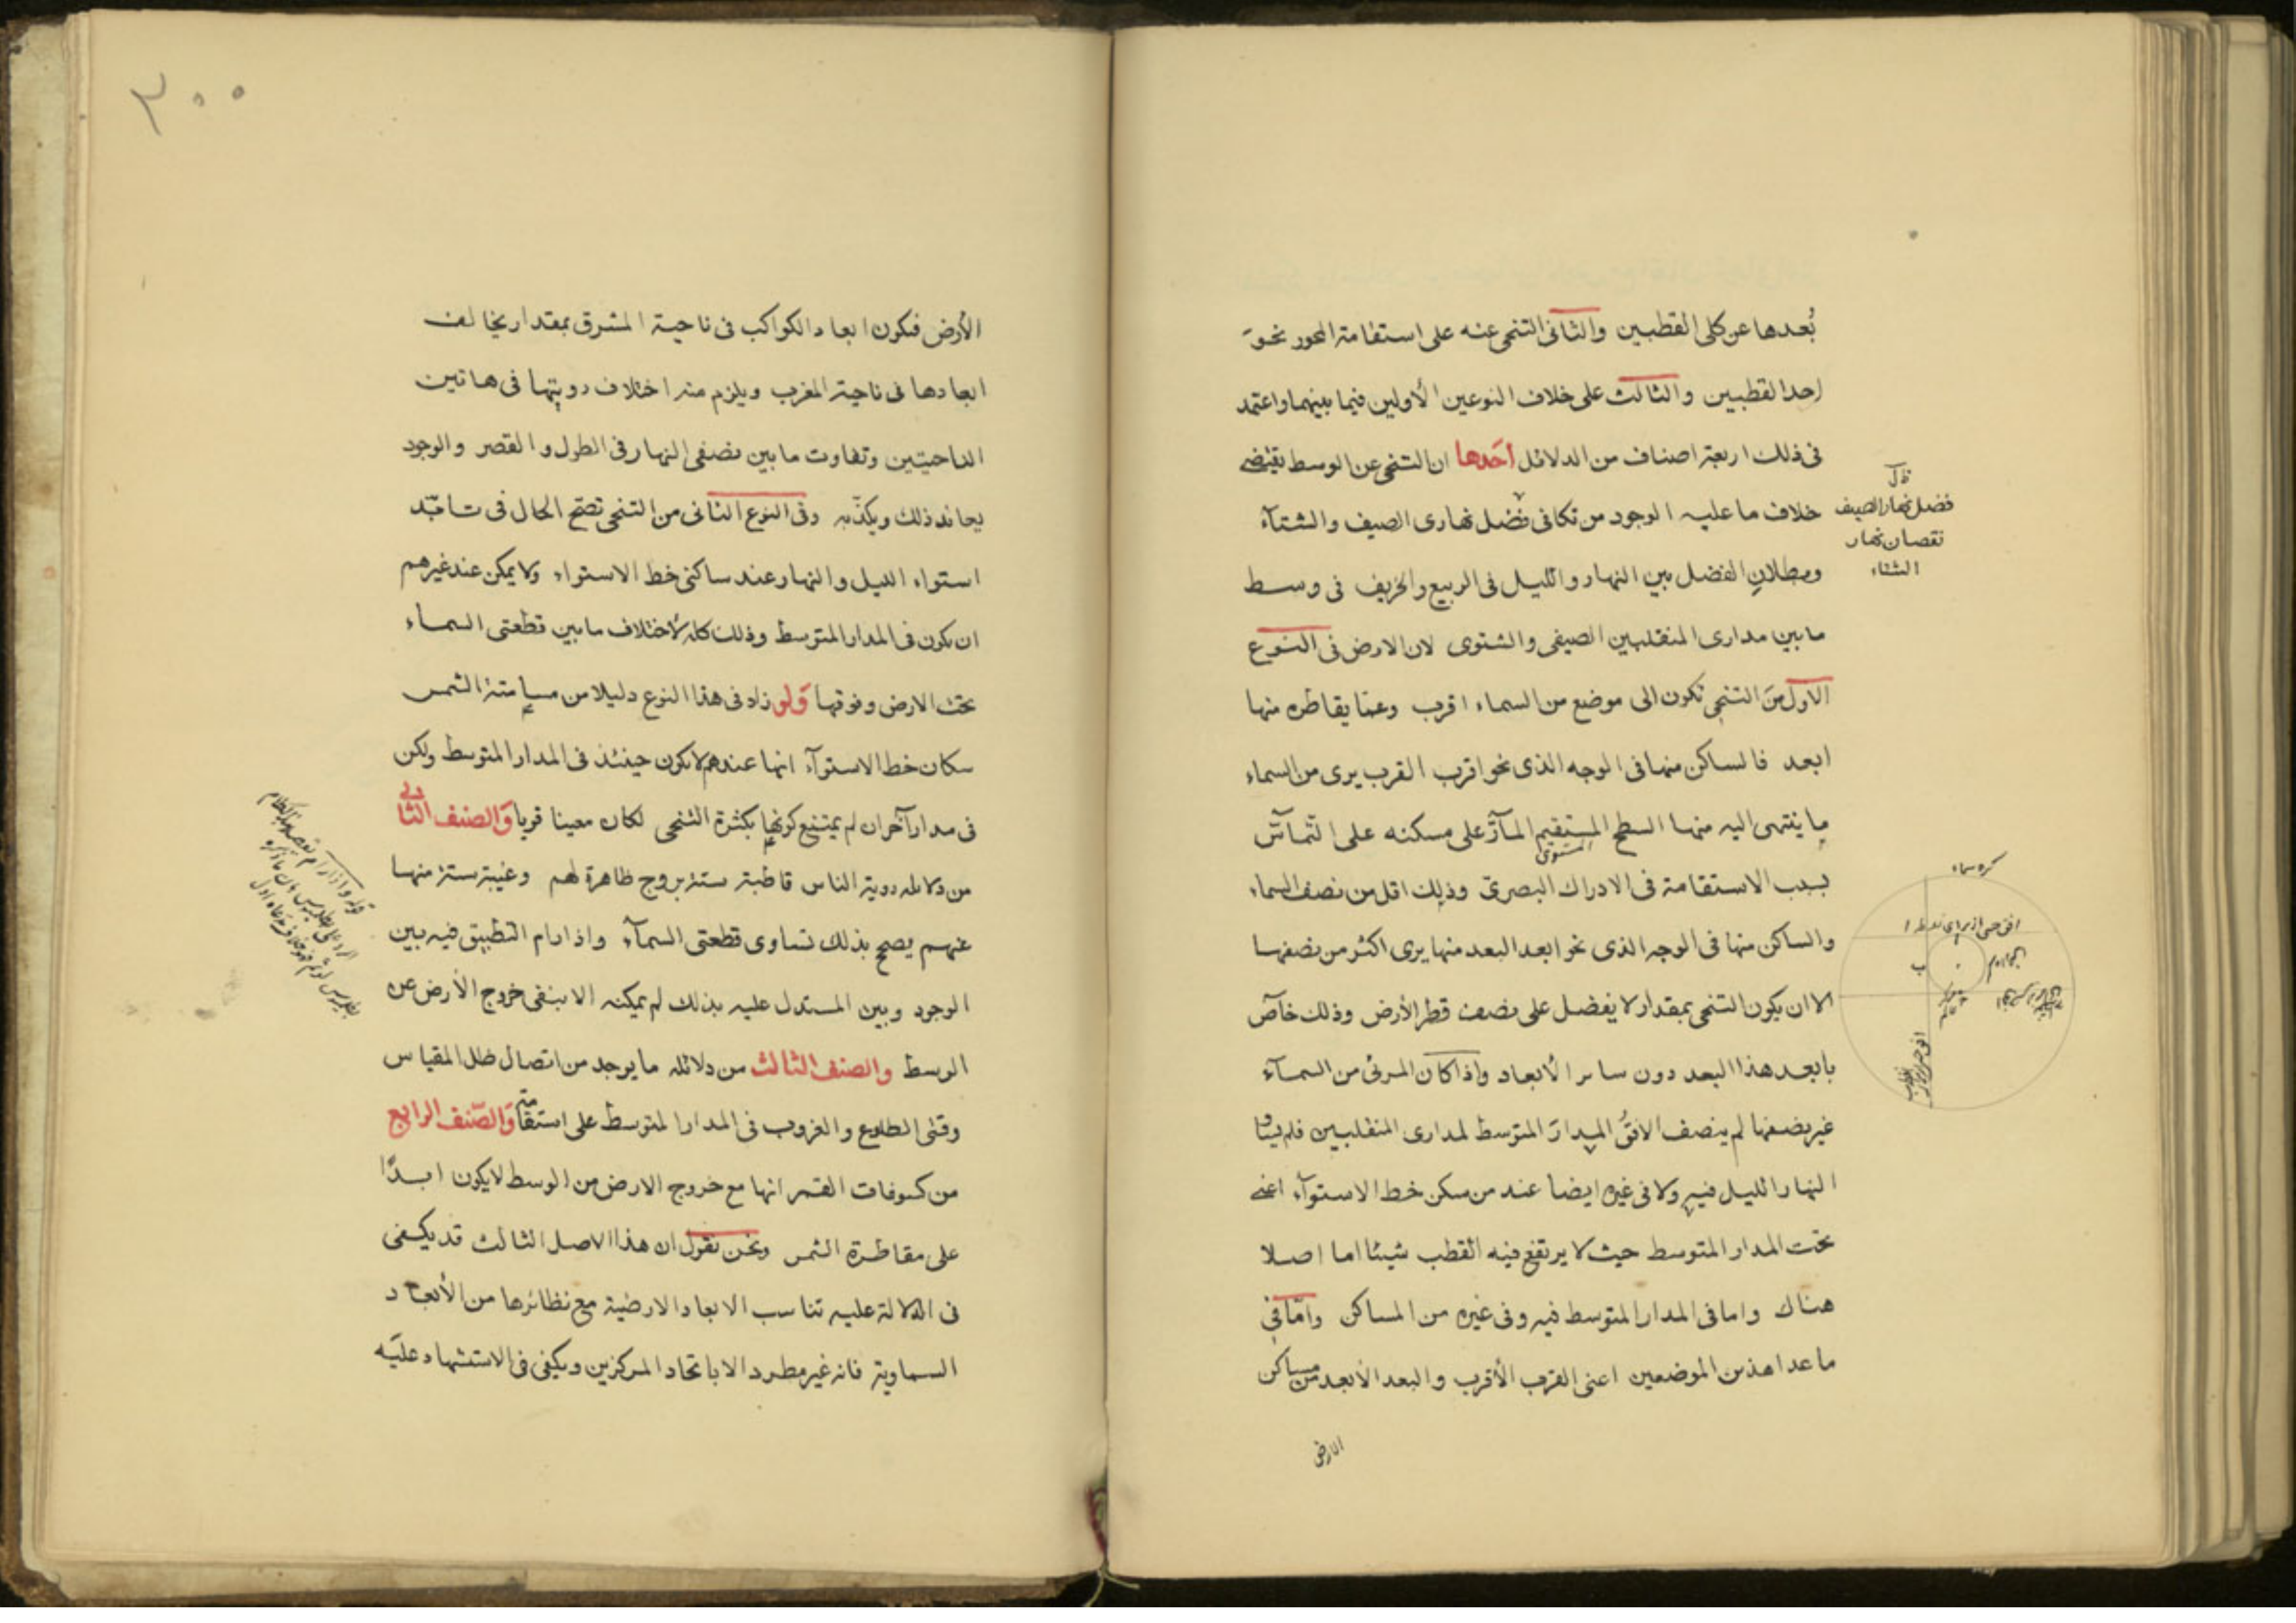 بُعدها عن كلى القطبين والثانى التنحى عنه على استقامة المحور نحو
احد القطبين والثالث على خلاف النوعين الأولين فيما بينهما واعتمد
فى ذلك اربعة اصناف من الدلائل أحَدها ان التنحى عن الوسط يقتضى
خلاف ما عليه الوجود من تكافى فضل نهارى الصيف والشتآء
وبطلان الفضل بين النهار والليل فى الربيع والخريف فى وسط
ما بين مدارى المنقلبين الصيفى والشتوى لان الارض فى النوع
الاول من التنحى تكون الى موضع من السماء اقرب وعما يقاطره منها
ابعد فالساكن منها فى الوجه الذى نحو اقرب القرب يرى من السماء
ما ينتهى اليه منها السطح المستقيم المآرّ على مسكنه على التمآسّ
المستوى
بسبب الاستقامة فى الادراك البصرىّ وذلك اقل من نصف السماء
والساكن منها فى الوجه الذى نحو ابعد البعد منها يرى اكثر من نصفها
الا ان يكون التنحى بمقدار لا يفضل على نصف قطر الأرض وذلك خآصّ
بابعد هذا البعد دون سائر الأبعاد واذا كان المرئى من السمآء
غير نصفها لم ينصف الافقُ المدارَ المتوسط لمدارى المنقلبين فلم يساو
النهار الليل فيه ولا فى غيره ايضا عند من سكن خط الاستوآء اعنى
تحت المدار المتوسط حيث لا يرتفع فيه القطب شيئا اما اصلا
هناك واما فى المدار المتوسط فيه وفى غيره من المساكن وامّا فى
ما عدا هذين الموضعين اعنى القرب الأقرب والبعد الأبعد من مساكن
الارض
فضل نهار الصيف
نقصان نهار
الشتاء
كره سماء
ب
٣٠٠
الأرض فتكون ابعاد الكواكب فى ناحية المشرق بمقدار يخالف
ابعادها فى ناحية المغرب ويلزم منه اختلاف رويتها فى هاتين
الناحيتين وتفاوت ما بين نصفى النهار فى الطول والقصر والوجود
يعاند ذلك ويكذّبه وفى النوع الثانى من التنحى تصح الحال فى
استواء الليل والنهار عند ساكنى خط الاستواء ولا يمكن عند غيرهم
ان تكون فى المدار المتوسط وذلك كله لاختلاف ما بين قطعتى السماء
تحت الارض وفوقها وَلو زاد فى هذا النوع دليلا من مسامتة الشمس
سكان خط الاستوآء انها عندهم لا تكون حينئذ فى المدار المتوسط ولكن
فى مدار آخر ان لم يمتنع كونها بكثرة التنحى لكان معينا قويا وَالصنف الثانى
من دلائله روية الناس قاطبة ستة بروج ظاهرة لهم وغيبة ستة منها
عنهم يصح بذلك تساوى قطعتى السمآء واذا رام التطبيق فيه بين
الوجود وبين المستدل عليه بذلك لم يمكنه الا بنفى خروج الأرض عن
الوسط والصنف الثالث من دلائله ما يوجد من اتصال ظل المقياس
وقتى الطلوع والغروب فى المدار المتوسط على استقامة وَالصّنف الرابع
من كسوفات القمر انها مع خروج الارض من الوسط لا يكون ابدًا
على مقاطرة الشمس ونحن نقول ان هذا الاصل الثالث قد يكفى
فى الدلالة عليه تناسب الابعاد الارضية مع نظائرها من الأبعاد
السماوية فانه غير مطرد الا باتحاد المركزين ويكفى فى الاستشهاد عليه